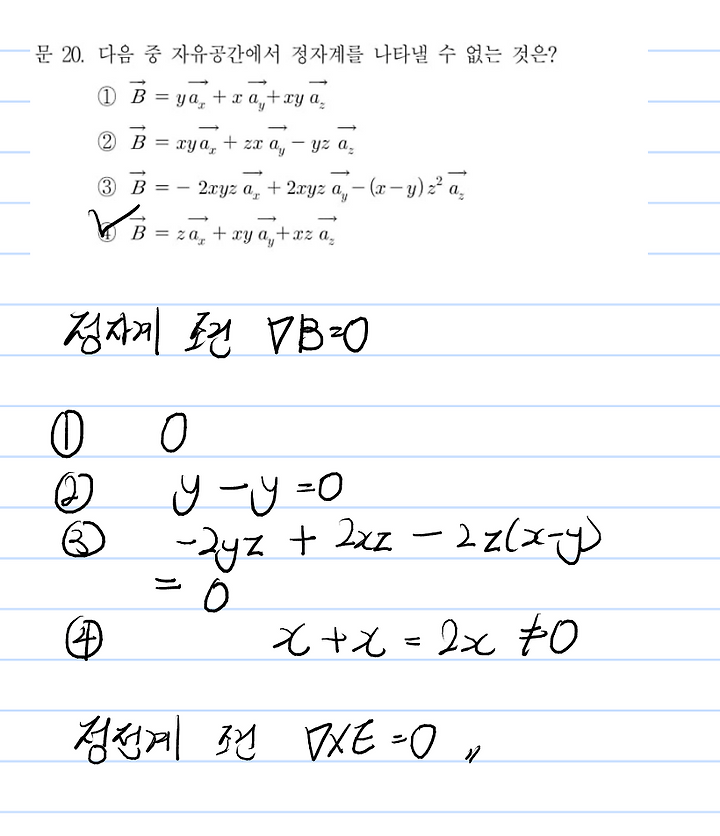 문 20. 다음 중 자유공간에서 정자계를 나타낼 수 없는 것은?
① B⃗ = y a⃗ₓ + x a⃗ᵧ + xy a⃗_z
② B⃗ = xy a⃗ₓ + zx a⃗ᵧ − yz a⃗_z
③ B⃗ = − 2xyz a⃗ₓ + 2xyz a⃗ᵧ − (x−y)z² a⃗_z
④ B⃗ = z a⃗ₓ + xy a⃗ᵧ + xz a⃗_z
정자계 조건 ∇B=0
① 0
② y −y =0
③ −2yz + 2xz − 2z(x−y)
= 0
④ x+x = 2x ≠0
정전계 조건 ∇×E =0 〃